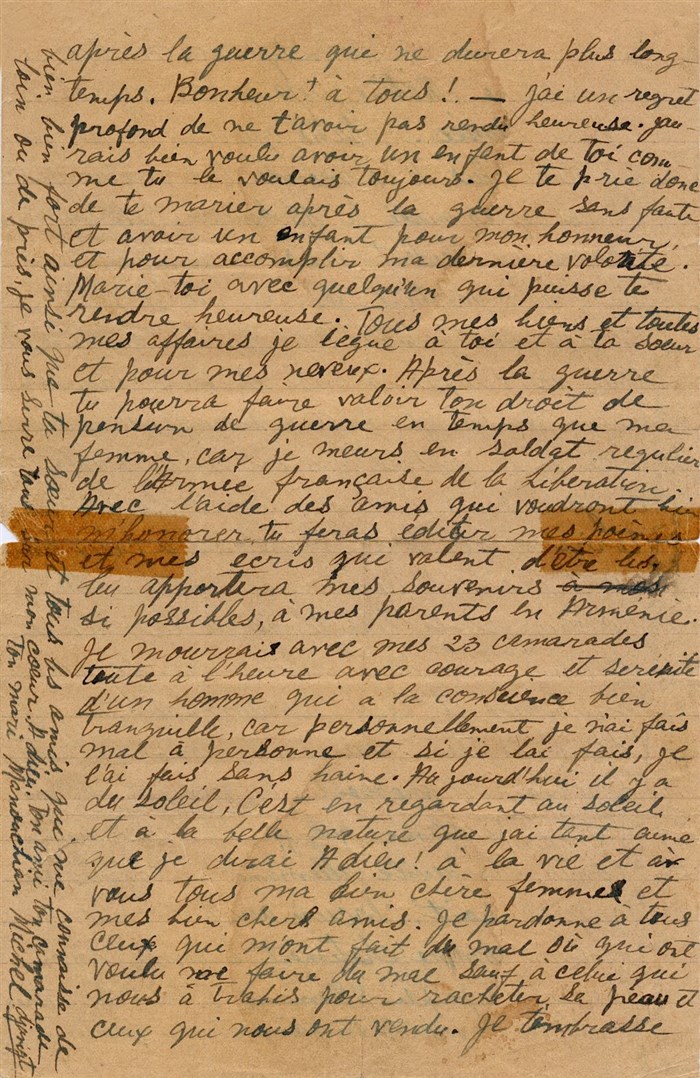 après la guerre qui ne durera plus long-
temps. Bonheur! à tous! — j'ai un regret
profond de ne t'avoir pas rendu heureuse. jau
rais bien voulu avoir un enfant de toi com-
me tu le voulais toujours. je te prie donc
de te marier après la guerre sans faute
et avoir un enfant pour mon honneur,
et pour accomplir ma dernière volonté.
Marie-toi avec quelqu'un qui puisse te
rendre heureuse. Tous mes biens et toutes
mes affaires je lègue à toi et à ta sœur
et pour mes neveux. Après la guerre
tu pourra faire valoir ton droit de
pension de guerre en temps que ma
femme, car je meurs en soldat regulier
de l'Armée française de la Libération.
Avec l'aide des amis qui voudront bien
m'honorer, tu feras éditer mes poèmes
et mes ecris qui valent d'être lus
tu apportera mes souvenirs à mes
si possibles, à mes parents en Arménie.
Je mourrais avec mes 23 camarades
toute à l'heure avec courage et serénité
d'un homme qui a la conscience bien
tranquille, car personnellement je n'ai fais
mal à personne et si je lai fais, je
l'ai fais sans haine. Aujourd'hui il y a
du soleil. C'est en regardant au soleil
et à la belle nature que jai tant aimé
que je dirai Adieu! à la vie et à
vous tous ma bien chère femme et
mes bien chers amis. Je pardonne à tous
ceux qui m'ont fait du mal où qui ont
voulu me faire du mal sauf à celui qui
nous à trahis pour racheter sa peau et
ceux qui nous ont vendu. Je t'embrasse
bien bien fort ainsi que ta sœur et tous les amis que me connaisse de
loin ou de près, je vous serre tous sur mon cœur. Adieu. Ton ami ton camarade
Ton mari Manouchian Michel djanigt